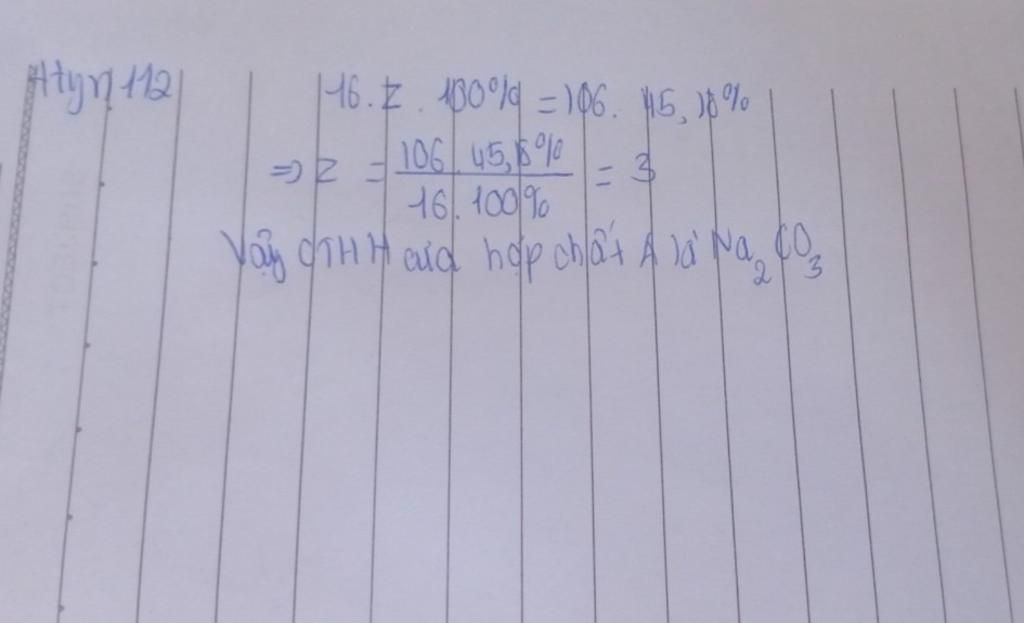 Atyn112
16.z.100% = 106. 45,18%
=> z = 106.45,8% / 16.100% = 3
Vậy CTHH của hợp chất A là Na₂CO₃